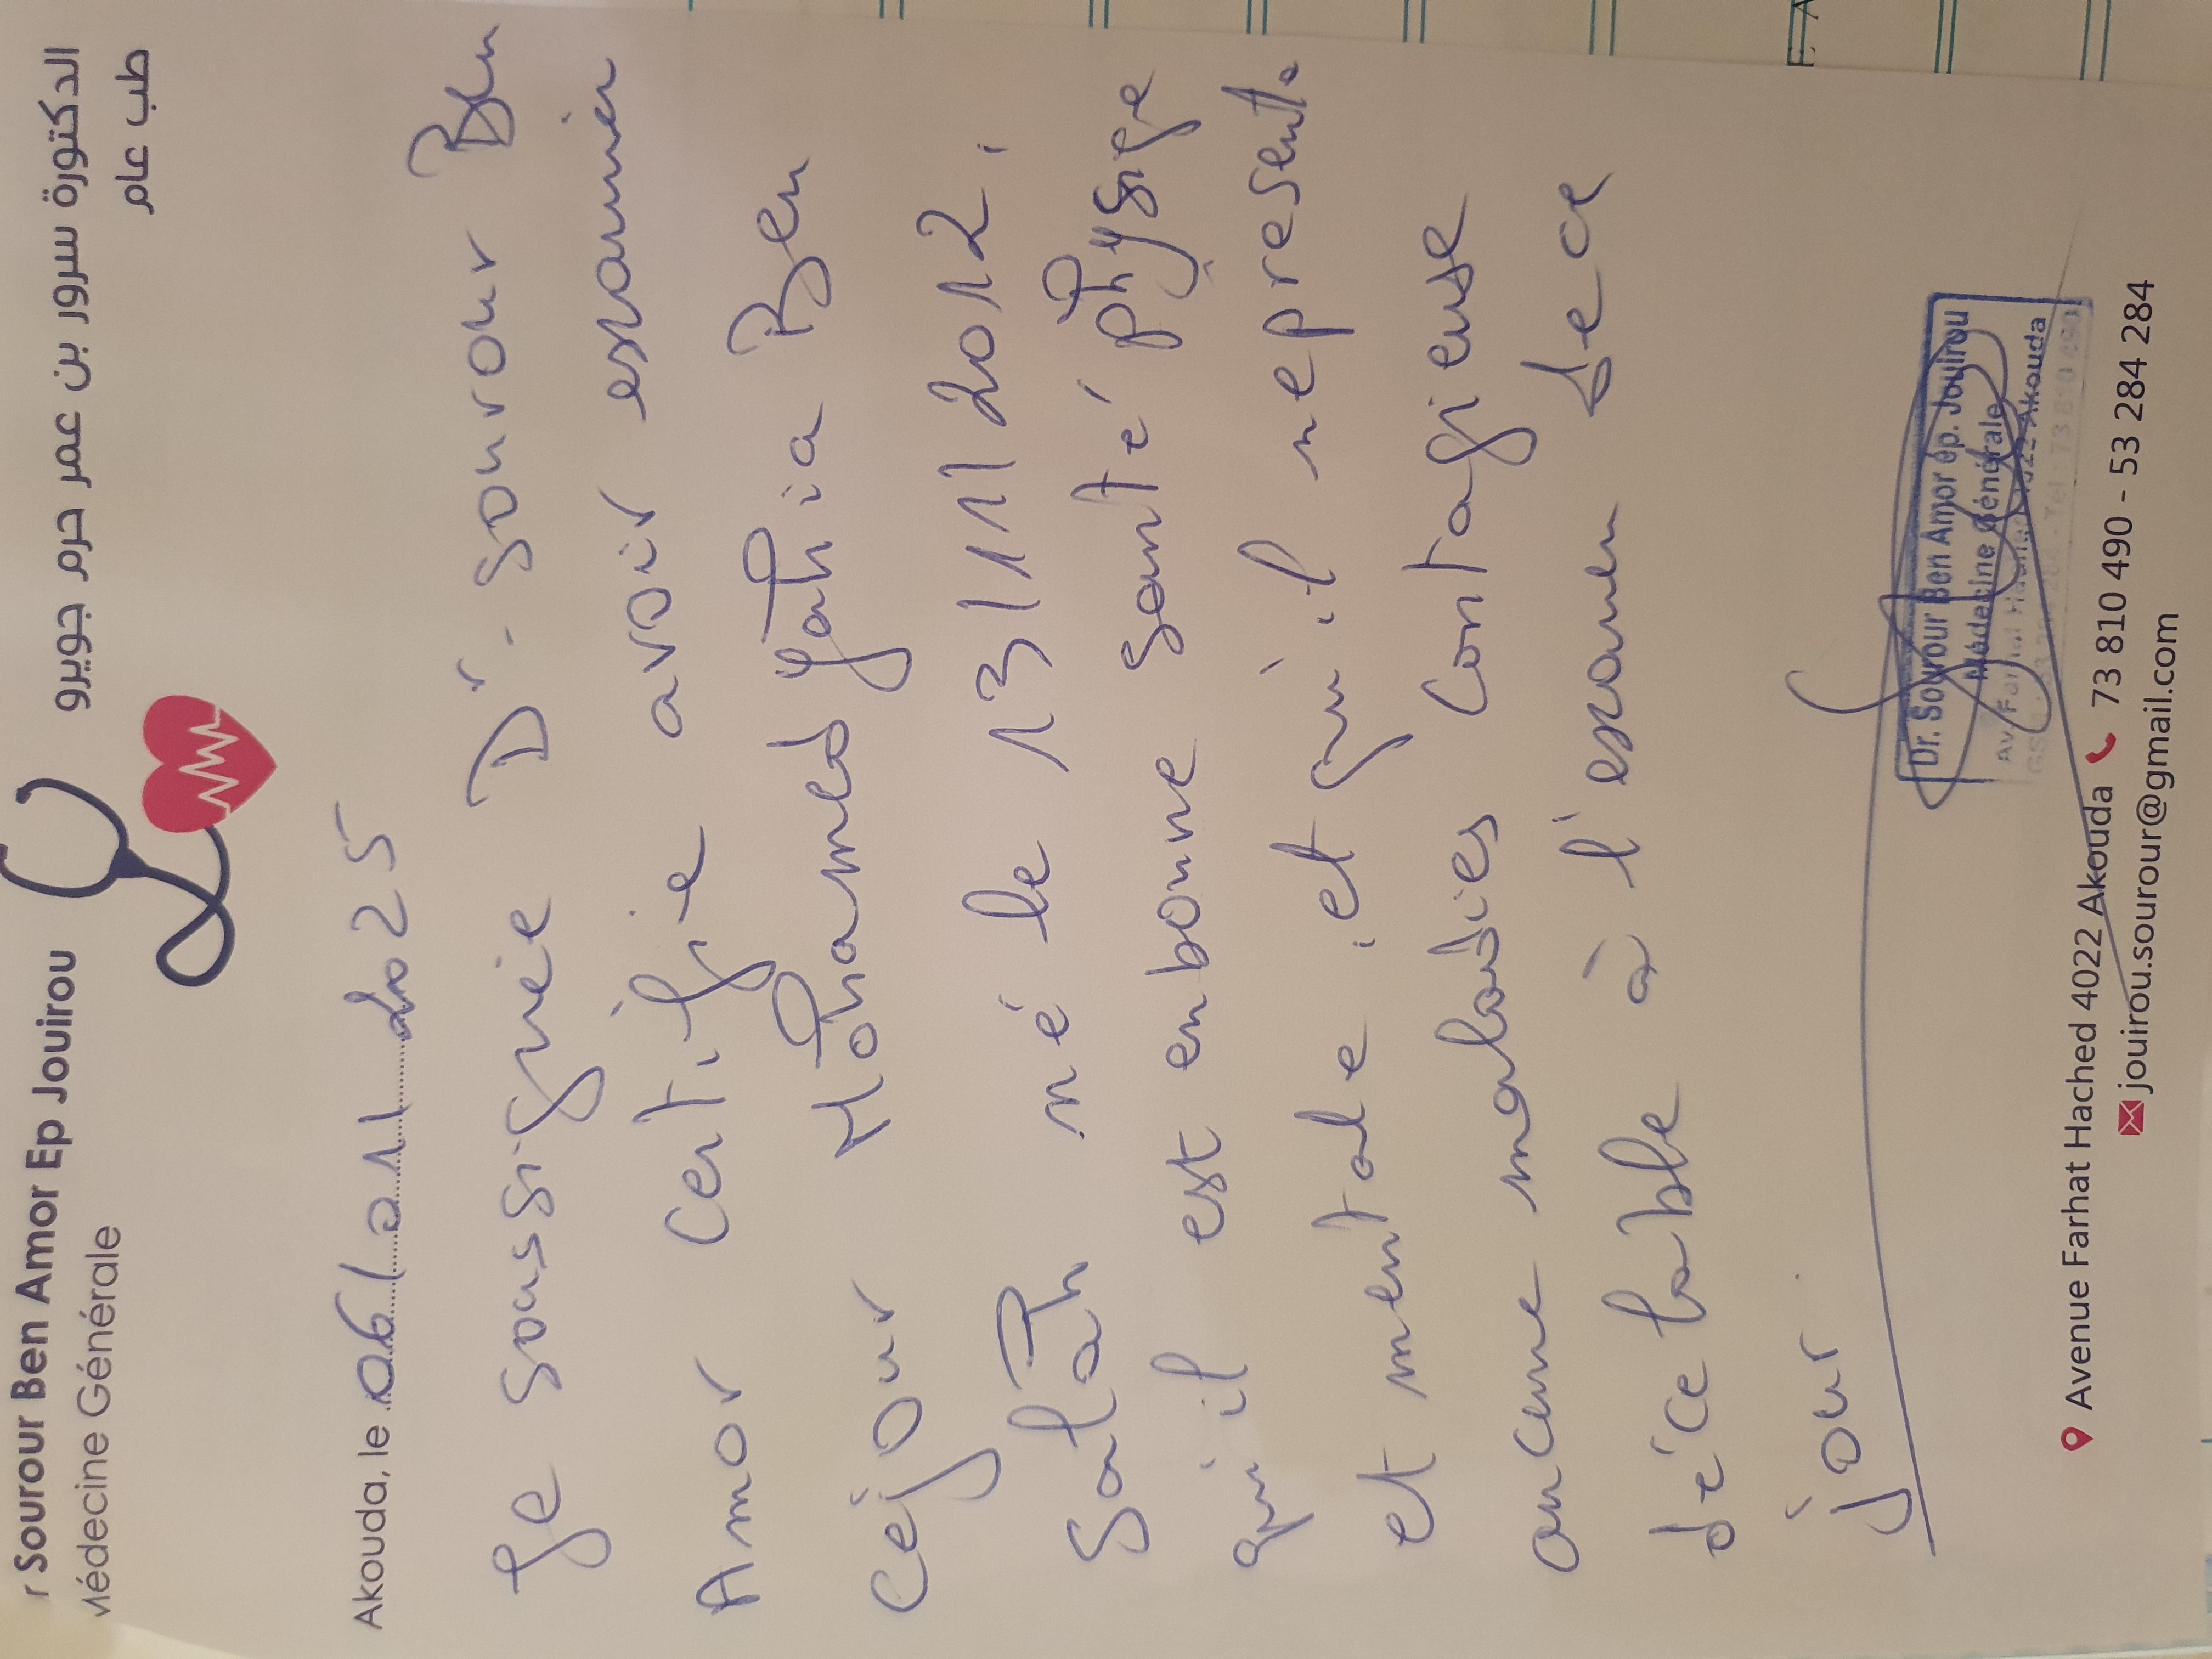 r Sourour Ben Amor Ep Jouirou
Médecine Générale
الدكتورة سرور بن عمر حرم جويرو
طب عام
Akouda, le 06/011 2025
Je soussignée Dr. Sourour Ben
Amor certifie avoir examiner
cejour Mohamed Yahia Ben
Salah né le 13/11/2012 :
qu'il est enbonne santé physiqe
et mentale : et qu'il ne presente
aucune maladies contagieuse
décelable à l'examen de ce
jour.
Dr. Sourour Ben Amor ép. Jouirou
Médecine Générale
Av. Farhat Hached 4022 Akouda
Tél : 73 810 490
Avenue Farhat Hached 4022 Akouda 73 810 490 - 53 284 284
jouirou.sourour@gmail.com